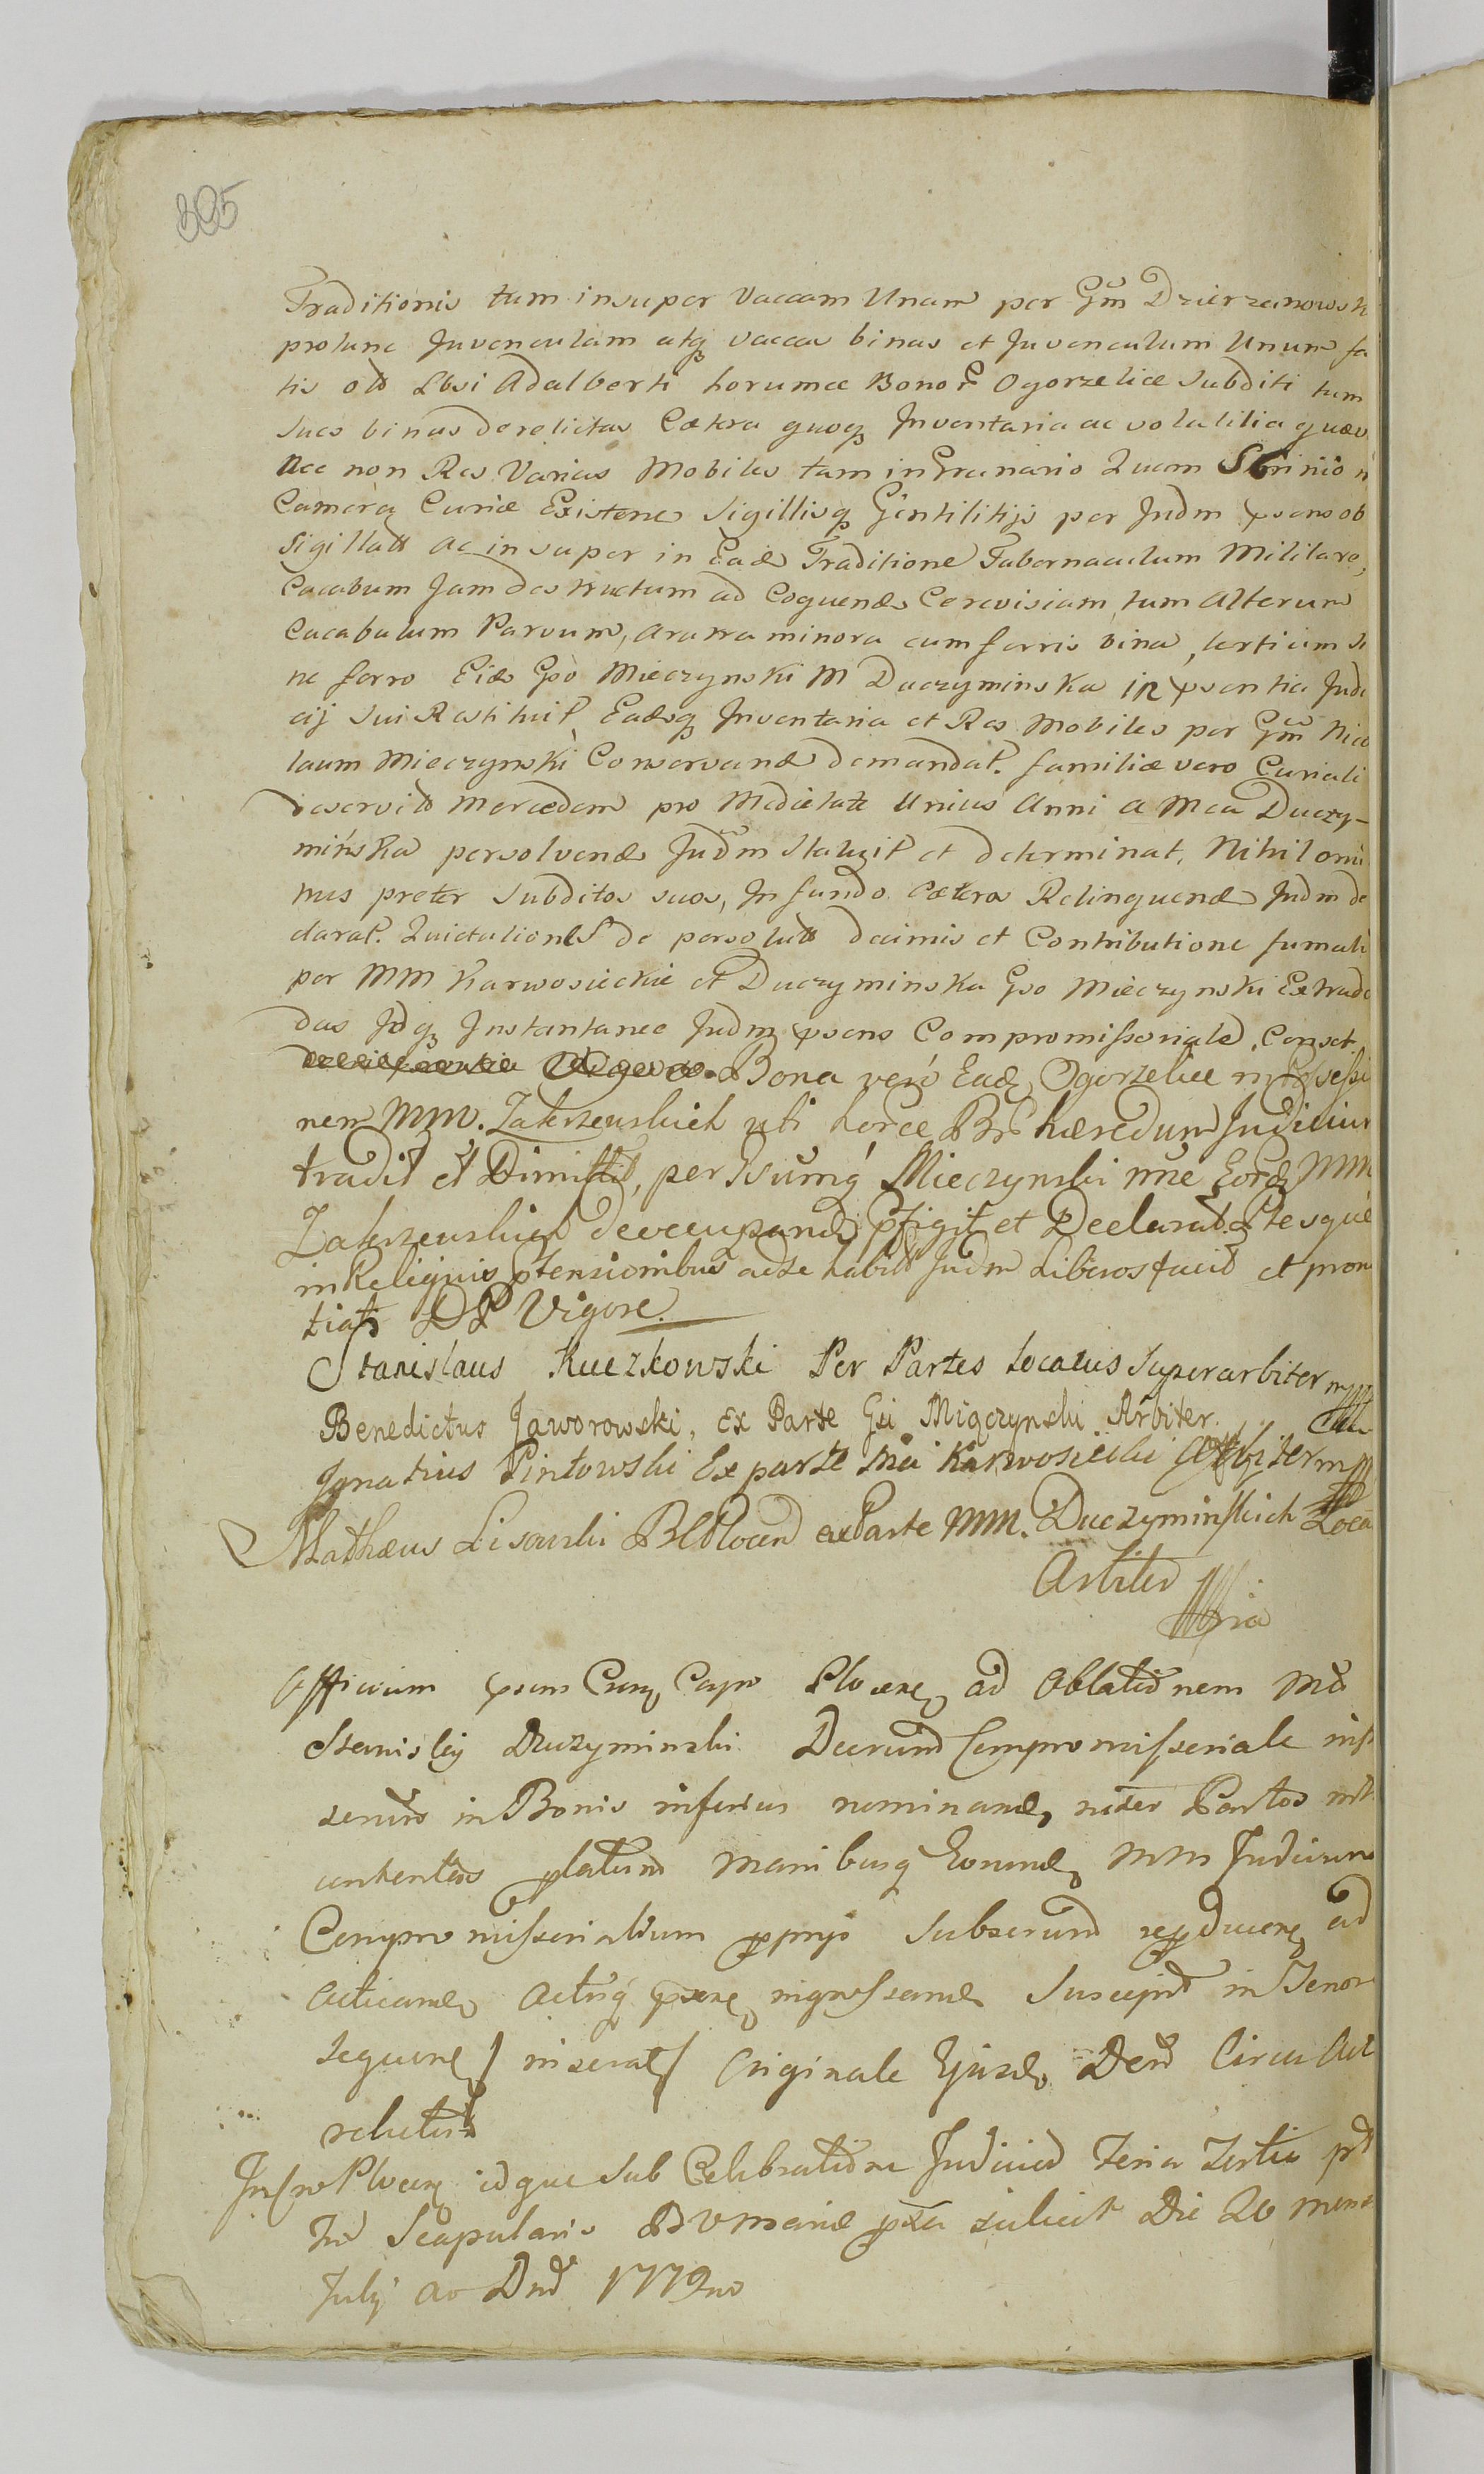 305
Traditionis tum insuper Vaccam Unam per Gm̃ Dzierzanowsk
protunc Juvenculam atq vaccas binas et Juvenculum Unum fa
tis olt Lbsi Adalberti horumce Bonor Ogorzelice Subditi tum
Sues binas derelictas Cætera quoq Inventaria ac volatilia quæv
Nec non Res Varias Mobiles tam in Granario Quam Scrinio
Camera Curiæ Existenc Sigillisq Gentilitijs per Judm psens ob
sigillatt ac insuper in Ead Traditione Tabernaculum Militare,
Cacabum Jam destructum ad Coquend Cerevisiam, tum Alterum
Cacabulum Parvum, aratra minora cum ferris bina, tertium si
ne ferro Eid Gso Mieczynski M Duczyminska in psentia Judi
cij sui Restituit Eadq Inventaria et Res Mobiles per Gm̃ Nico
laum Mieczynski Conservand demandat. familiæ vero Curiali
deservitt Mercedem pro Medietate Unius Anni a Mca Duczy-
mińska persolvend Judm Statuit et determinat, Nihilomi
nus preter Subditos suos, In fundo Cætera Relinquend Judm de
clarat. Quietationes de persolutt decimis et Contributione fumali
per MM Karwosieckie et Duczyminska Gso Mieczynski Extrade
das Idq Instantanee Judm psens Compromissoriale Censet.
Bona veró Ead Ogorzelice in possessi
nem MM. Zakrzewskich uti horce Br hæredum Judicium
tradit et Dimittit, per Mieczynski nne Eord MM
Zakrzewskich deoccupand pfigit et Declarat. Ptesque
in Reliquis ptensionibus adse habitt Judm Liberos facit et pron
tiat DP Vigore.
Stanislaus Kuczkowski Per Partes Locatus Superarbiter mpp
Benedictus Jaworowski, Ex Parte Gsi Miączynski Arbiter.
Ignatius Pintowski Ex parte Mci Karwosiecki Arbiter mpp
Mathæus Lisowski ex Parte MM. Duczyminskich Loca
Arbiter
Officium psens Capt Plocen ad Oblationem Mci
Stanislaj Duczyminski Decretum Compromissoriale
in Bonis inferius nominand, inter Partes
contentas platum manibusq Eorund MM Judicum
Compromissorialium pprijs Subscriptum ad
Acticand Actisq psent ingrossand Suscepit in Tenore
sequen / inserat / Originale Ejusd Circa Act
relictum
Plocen idque sub Celebratione Judicior Feria Tertia
Scapularis BVMariæ pxa scilicet Die 20 mens
Julij Ao Dni 1779no